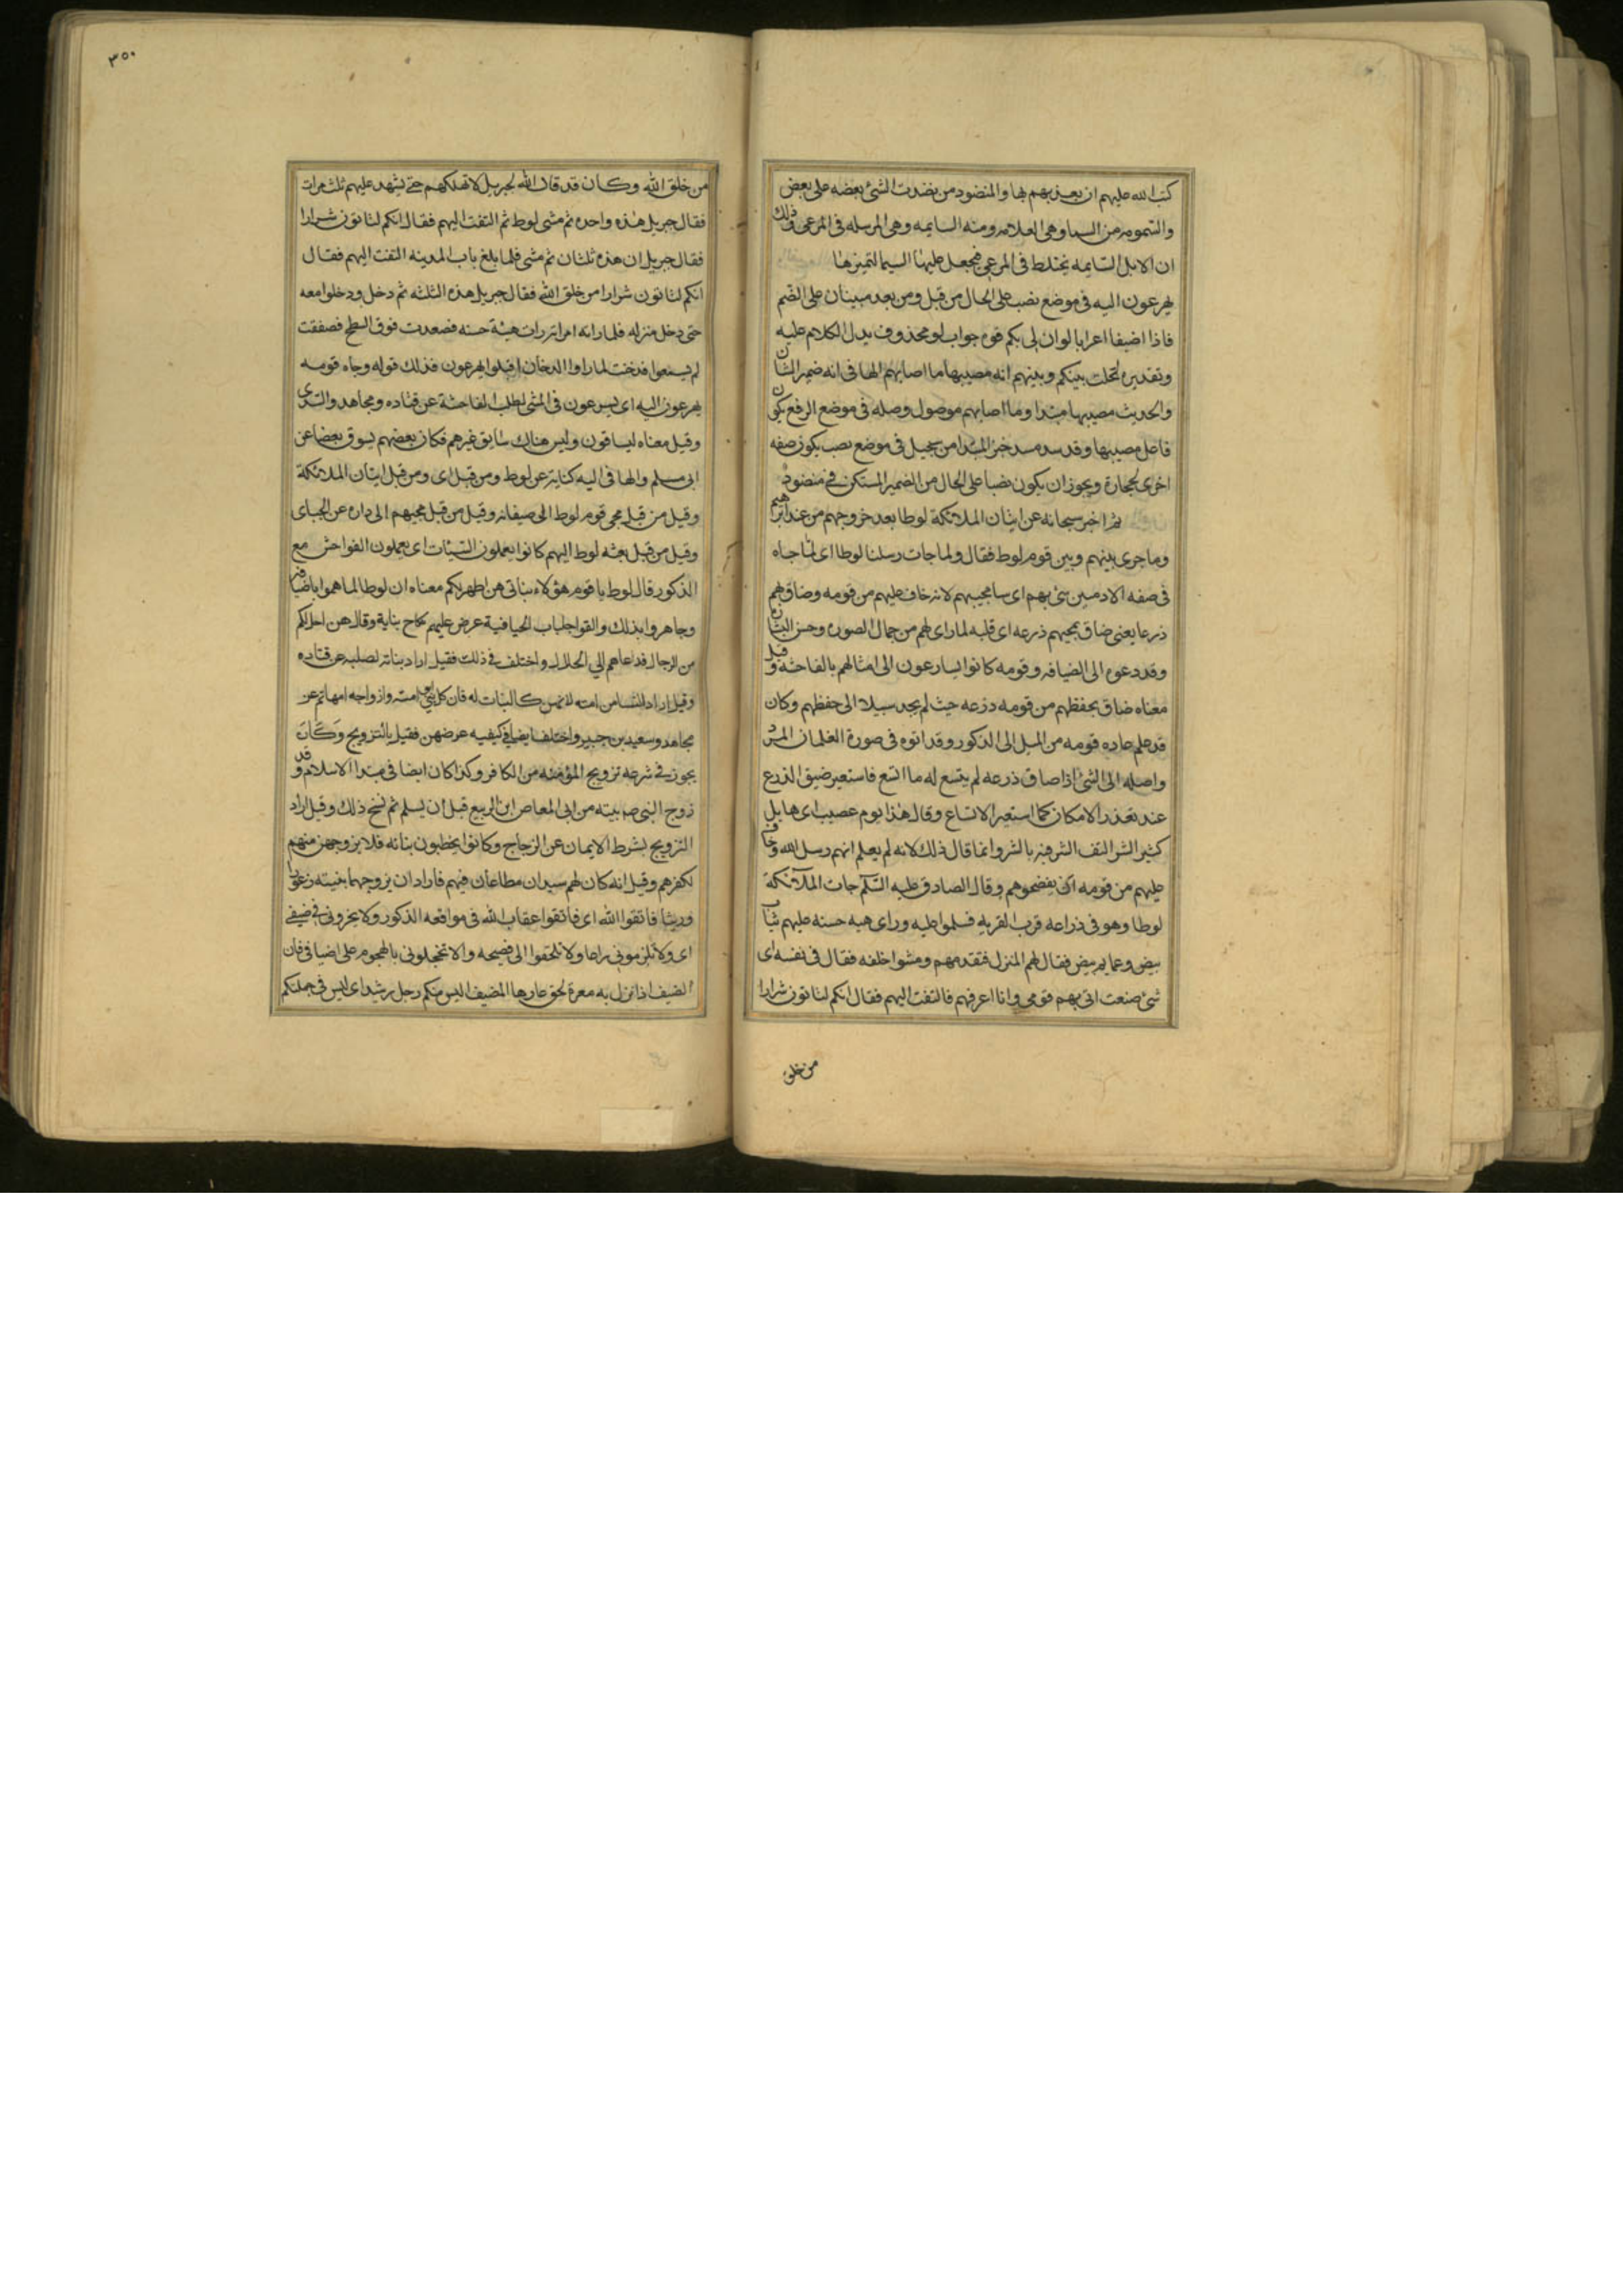 كتب الله عليهم ان يعذبهم بها والمنضود من نضدت الشئ بعضه على بعض
والتسومه من السيما وهى العلامه ومنه السايمه وهى المرسله فى المرعى وذلك
ان الابل السايمه تختلط فى المرعى فيجعل عليها السيما لتميزها
يهرعون اليه فى موضع نصب على الحال من قبل ومن بعد مبينان على الضم
فاذا اضيفا اعرابا لو ان لى بكم قوه جواب لو محذوف يدل الكلام عليه
وتقديره لحلت بينكم وبينهم انه مصيبها ما اصابهم الها فى انه ضمير الشان
والحديث مصيبها مبتدا وما اصابهم موصول وصله فى موضع الرفع بكون
فاعل مصيبها وقد سد مسد خبر المبتدا من سجيل فى موضع نصب بكون صفه
اخرى لحجارة ويجوز ان يكون نصبا على الحال من الضمير المستكن فى منضود
ثم اخبر سبحانه عن اتيان الملائكة لوطا بعد خروجهم من عند ابراهيم
وما جرى بينهم وبين قوم لوط فقال ولما جات رسلنا لوطا اى لما جاه
فى صفه الادميين سئ بهم اى سا مجيهم لانه خاف عليهم من قومه وضاق بهم
ذرعا يعنى ضاق بمجيهم ذرعه اى قلبه لما راى لهم من جمال الصوره وحسن الشان
وقد دعوه الى الضيافه وقومه كانوا يسارعون الى امثالهم بالفاحشه وقيل
معناه ضاق بحفظهم من قومه ذرعه حيث لم يجد سبيلا الى حفظهم وكان
قد علم عاده قومه من الميل الى الذكور وقد اتوه فى صورة الغلمان المرد
واصله ان الشئ اذا ضاق ذرعه لم يتسع له ما اتسع فاستعير ضيق الذرع
عند تعذر الامكان كما استعير الاتساع وقال هذا يوم عصيب اى هايل
كثير الشر التف الشر فيه بالشر وانما قال ذلك لانه لم يعلم انهم رسل الله وخاف
عليهم من قومه ان يفضحوهم وقال الصادق عليه السلم جات الملائكة
لوطا وهو فى زراعه قرب القريه فسلموا عليه وراى هيه حسنه عليهم ثياب
بيض وعمايم بيض فقال لهم المنزل فتقدمهم ومشوا خلفه فقال فى نفسه اى
شئ صنعت اتى بهم قومى وانا اعرفهم فالتفت اليهم فقال انكم لتاتون شرارا
من خلق
٣٥٠
من خلق الله وكان قد قال الله لجبريل لا تهلكهم حتى يشهد عليهم ثلث مرات
فقال جبريل هذه واحده ثم مشى لوط ثم التفت اليهم فقال انكم لتاتون شرارا
فقال جبريل ان هذه ثلثان ثم مشى فلما بلغ باب المدينه التفت اليهم فقال
انكم لتاتون شرارا من خلق الله فقال جبريل هذه الثلثه ثم دخل ودخلوا معه
حتى دخل منزله فلما راته امراته رات هيئة حسنه فصعدت فوق السطح فصفقت
لم يسمعوا فدخنت لما راوا الدخان اقبلوا يهرعون فذلك قوله وجاه قومه
يهرعون اليه اى يسرعون فى المشى لطلب الفاحشة عن قتاده ومجاهد والسدى
وقيل معناه ليساقون وليس هناك سايق غيرهم فكان بعضهم يسوق بعضا عن
ابى مسلم والها فى اليه كناية عن لوط ومن قبل اى ومن قبل اتيان الملائكة
وقيل من قبل مجى قوم لوط الى ضيفانه وقيل من قبل مجيهم الى داره عن الجباى
وقيل من قبل بعثه لوط اليهم كانوا يعملون السيئات اى يعملون الفواحش مع
الذكور قال لوط يا قوم هؤلاء بناتى هن اطهر لكم معناه ان لوطا لما هموا باضيافه
وجاهروا بذلك والقوا جلباب الحيا فيه عرض عليهم نكاح بناته وقال هن احل لكم
من الرجال فدعاهم الى الحلال واختلف فى ذلك فقيل اراد بناته لصلبه عن قتاده
وقيل اراد النسا من امته لانهن كالبنات له فان كل نبى ابو امته وازواجه امهاتهم عن
مجاهد وسعيد بن جبير واختلف ايضا فى كيفيه عرضهن فقيل بالتزويج وكان
يجوز فى شرعه تزويج المؤمنه من الكافر وكذا كان ايضا فى مبتدا الاسلام وقد
زوج النبى ص بنته من ابى المعاص ابن الربيع قبل ان يسلم ثم نسخ ذلك وقيل اراد
التزويج بشرط الايمان عن الزجاج وكانوا يخطبون بناته فلا يزوجهن منهم
لكفرهم وقيل انه كان لهم سيدان مطاعان فيهم فاراد ان يزوجهما بنيته زعورا
وريثا فاتقوا الله اى فاتقوا عقاب الله فى مواقعه الذكور ولا تخزونى فى ضيفى
اى ولا تلزمونى عارا ولا تلحقوا الى فضيحه والا تخجلونى بالهجوم على اضيافى فان
الضيف اذا نزل به معرة لحق عارها المضيف اليس منكم رجل رشيد اى اليس فى جملتكم